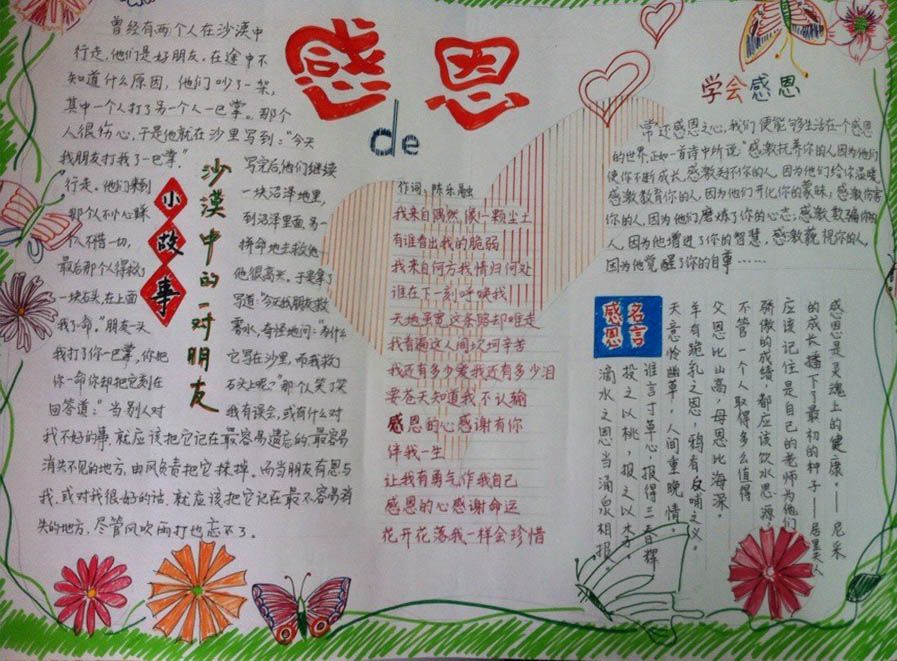 感恩
de
曾经有两个人在沙漠中
行走,他们是好朋友,在途中不
知道什么原因,他们吵了一架,
其中一个人打了另一个人一巴掌。那个
人很伤心,于是他就在沙里写到:“今天
我朋友打我了一巴掌。”
写完后他们继续
行走。他们来到
一块沼泽地里,
那个人不小心踩
到沼泽里面,另一
个人不惜一切,
拼命地去救他
最后那个人得救了
他很高兴,于是拿了
一块石头,在上面
写道:今天我朋友救
我了命,”朋友一头
雾水,奇怪地问:为什么
我打了你一巴掌,你把
它写在沙里,而我救了
你一命你却把它刻在
石头上呢?”那个人笑了笑
回答道:”当别人对
我有误会,或有什么对
我不好的事,就应该把它记在最容易遗忘的,最容易
消失不见的地方,由风负责把它抹掉。而当朋友有恩与
我,或对我很好的话,就应该把它记在最不容易消
失的地方,尽管风吹雨打也忘不了。
小故事
沙漠中的一对朋友
作词:陈乐融
我来自偶然像一颗尘土
有谁看出我的脆弱
我来自何方我情归何处
谁在下一刻呼唤我
天地虽宽这条路却难走
我看遍这人间坎坷辛苦
我还有多少爱我还有多少泪
要苍天知道我不认输
感恩的心感谢有你
伴我一生
让我有勇气作我自己
感恩的心感谢命运
花开花落我一样会珍惜
学会感恩
常还感恩之心,我们便能够生活在一个感恩
的世界,正如一首诗中所说“感激抚养你的人因为他们
使你不断成长,感激关怀你的人,因为他们给你温暖
感激教育你的人,因为他们开化你的蒙昧;感激伤害
你的人,因为他们磨炼了你的心态;感激欺骗你的
人,因为他增进了你的智慧,感激藐视你的人,
因为他觉醒了你的自尊……
感恩名言
感恩是灵魂上的健康。——尼采
的成长播下了最初的种子——居里夫人
应该记住是自己的老师为他们
骄傲的成绩,都应该饮水思源,
不管一个人取得多么值得
父恩比山高,母恩比海深。
羊有跪乳之恩,鸦有反哺之义。
天意怜幽草,人间重晚情
谁言寸草心,报得三春晖
投之以桃,报之以李
滴水之恩,当涌泉相报。